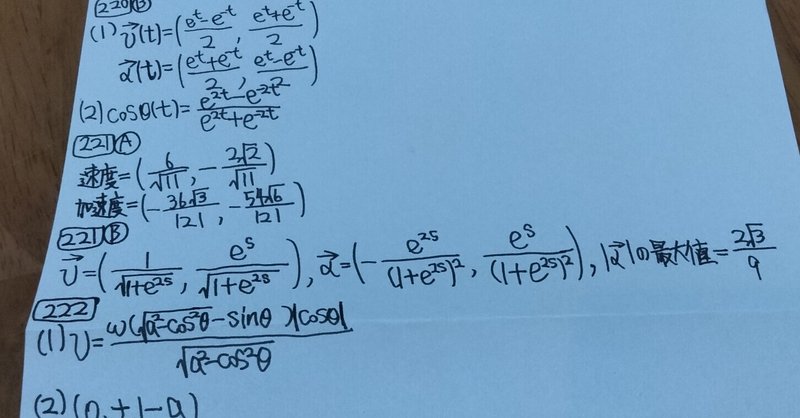 220 B
(1) v⃗(t)=((e^t-e^-t)/2, (e^t+e^-t)/2)
α⃗(t)=((e^t+e^-t)/2, (e^t-e^-t)/2)
(2) cosθ(t)=(e^2t-e^-2t)/(e^2t+e^-2t)
221 A
速度=(6/√11, -2√2/√11)
加速度=(-36√3/121, -54√6/121)
221 B
v⃗=(1/√(1+e^2s), e^s/√(1+e^2s)), α⃗=(-e^2s/(1+e^2s)^2, e^s/(1+e^2s)^2), |α⃗|の最大値=2√3/9
222
(1) v=ω(√(a²-cos²θ)-sinθ)|cosθ|/√(a²-cos²θ)